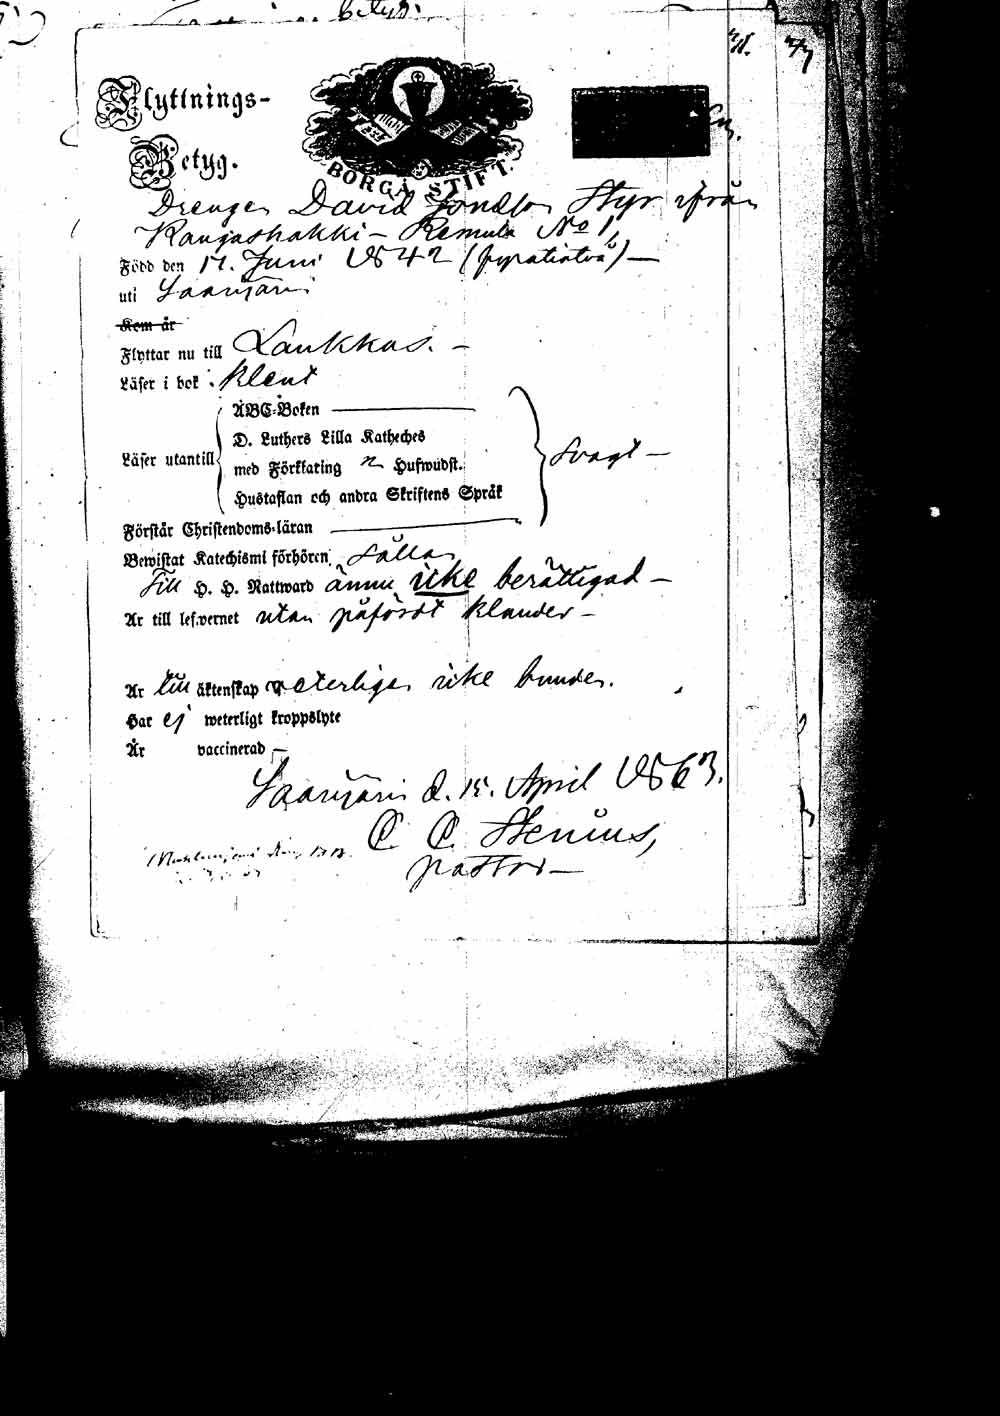 betyg.
Flyttnings-
Betyg.
BORGÅ STIFT.
Drengen David Jonasson Styr ifrån
Kangashäkki - Remula No 1,
Född den 17. Juni 1842 (fyratiotvå) —
uti Saarijärvi
Kom år
Flyttar nu till Laukkas. -
Läser i bok klent
ABC-Boken
D. Luthers Lilla Katheches
Läser utantill med Förklaring Hufwudst. svagt -
Hustaflan och andra Skriftens Språk
Förstår Christendoms-läran
Bewistat Katechismi förhören sällan
Till H. H. Nattward ännu icke berättigad -
Är till lefwernet utan påfördt klander -
Är till äktenskap veterligen icke bunden.
Har ej weterligt kroppslyte
Är vaccinerad -
Saarijärvi d. 15. April 1863.
C. C. Stenius,
pastor -